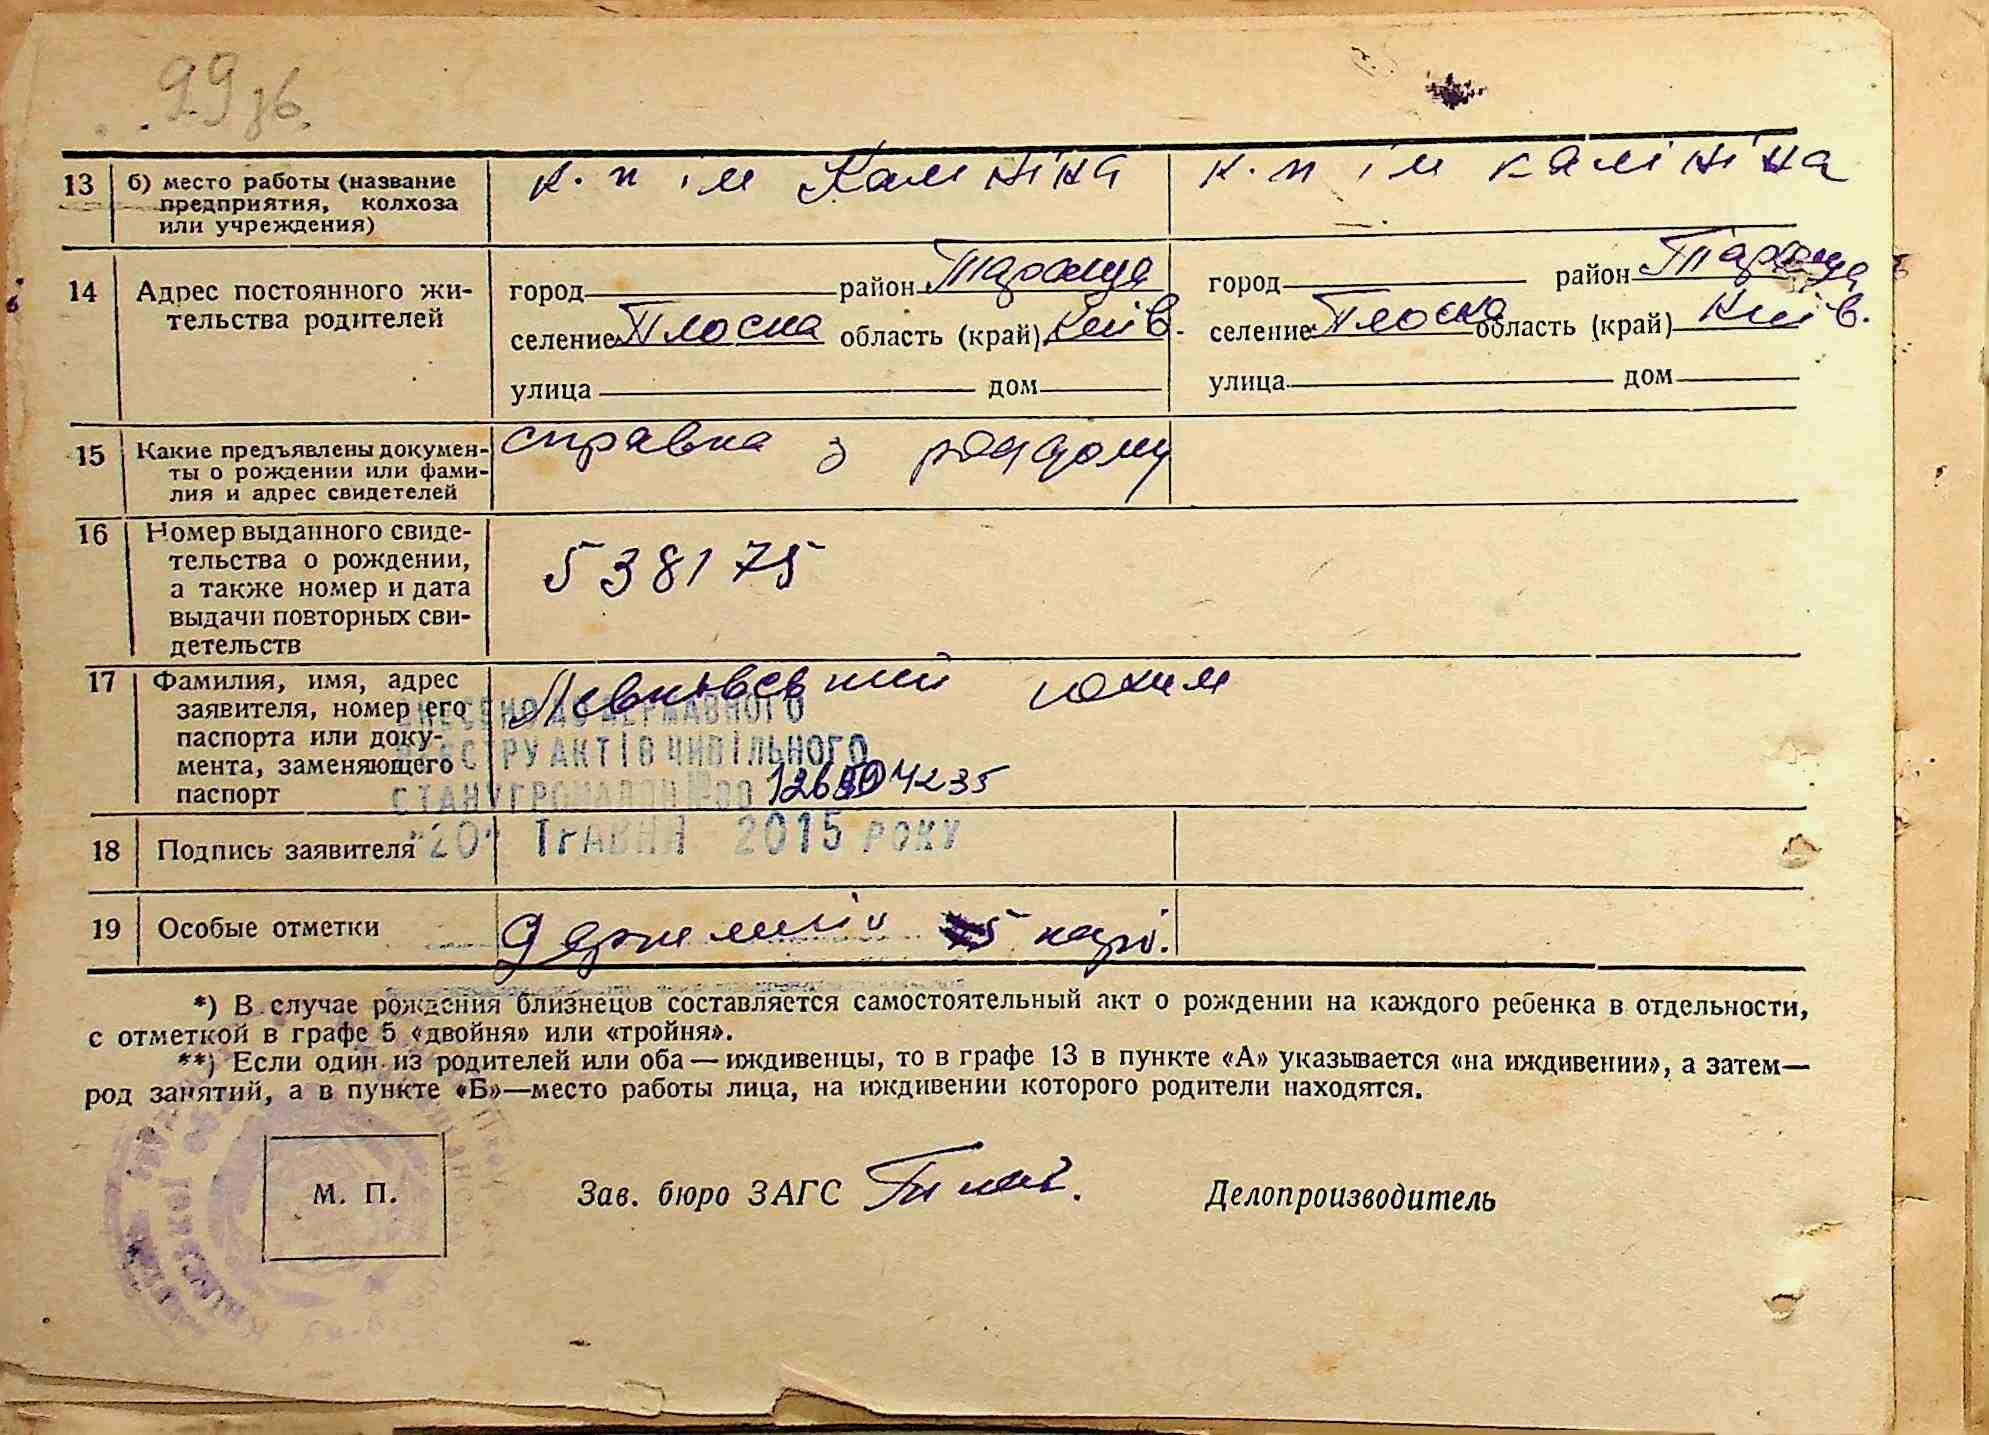 99 зв.
13 б) место работы (название предприятия, колхоза или учреждения) к-п ім Калініна к-п ім калініна
14 Адрес постоянного жительства родителей
город район Тараща город район Тараща
селение Плоска область (край) Київ. селение Плоска область (край) Київ.
улица дом улица дом
15 Какие предъявлены документы о рождении или фамилия и адрес свидетелей справка з роддому
16 Номер выданного свидетельства о рождении, а также номер и дата выдачи повторных свидетельств 538175
17 Фамилия, имя, адрес заявителя, номер его паспорта или документа, заменяющего паспорт юхим
ВНЕСЕНО ДО ДЕРЖАВНОГО
РЕЄСТРУ АКТІВ ЦИВІЛЬНОГО
СТАНУ ГРОМАДЯН №00 4235
"20" ТРАВНЯ 2015 РОКУ
18 Подпись заявителя
19 Особые отметки
*) В случае рождения близнецов составляется самостоятельный акт о рождении на каждого ребенка в отдельности,
с отметкой в графе 5 «двойня» или «тройня».
**) Если один из родителей или оба — иждивенцы, то в графе 13 в пункте «А» указывается «на иждивении», а затем—
род занятий, а в пункте «Б»—место работы лица, на иждивении которого родители находятся.
М. П. Зав. бюро ЗАГС Делопроизводитель